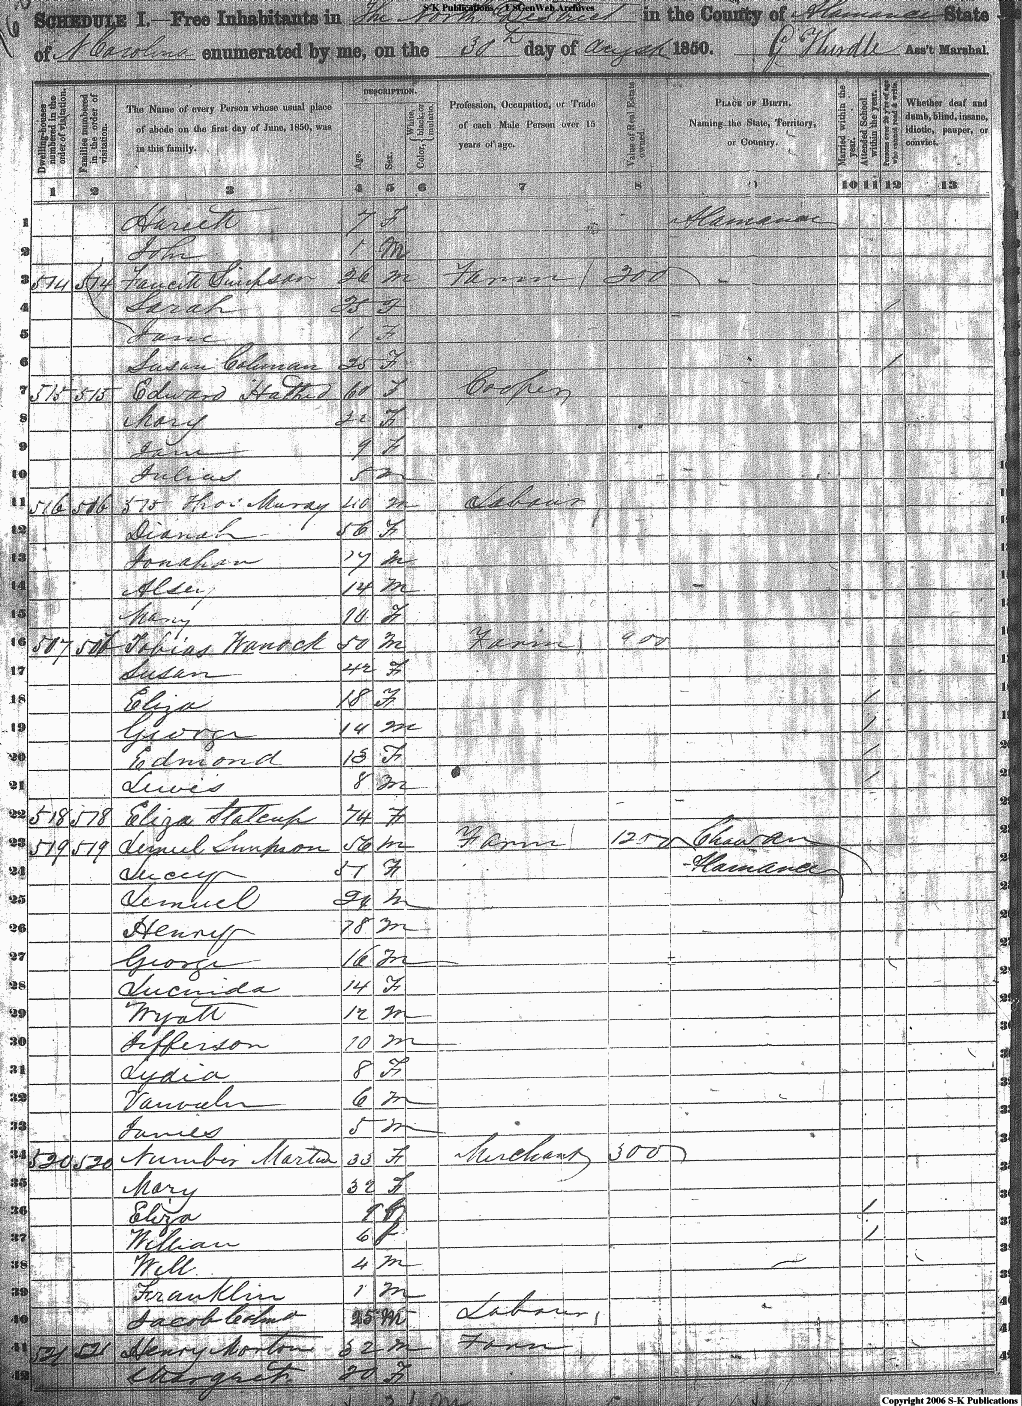 S-K Publications / USGenWeb Archives
SCHEDULE I.—Free Inhabitants in The North District in the County of Alamance State
of N Carolina enumerated by me, on the 30th day of 1850. G Hurdle Ass't Marshal.
Dwelling-houses numbered in the order of visitation.
Families numbered in the order of visitation.
The Name of every Person whose usual place of abode on the first day of June, 1850, was in this family.
DESCRIPTION.
Age.
Sex.
Color, white, black, or mulatto.
Profession, Occupation, or Trade of each Male Person over 15 years of age.
Value of Real Estate owned.
PLACE OF BIRTH. Naming the State, Territory, or Country.
Married within the year.
Attended School within the year.
Persons over 20 y'rs of age who cannot read & write.
Whether deaf and dumb, blind, insane, idiotic, pauper, or convict.
1 2 3 4 5 6 7 8 9 10 11 12 13
1 7 F Alamance
2 John 1 M
3 514 514 Faucett Simpson 26 M Farm 300
4 Sarah 25 F /
5 Jane 1 F
6 Susan Coleman 25 F /
7 515 515 Edward 60 F Cooper
8 Mary 22 F
9 Jane 9 F
10 Julius 5 M
11 516 516 515 Thos Murray 40 M Labour
12 Dianah 56 F
13 Jonathan 17 M
14 Alsey 14 M
15 Mary 10 F
16 517 516 Tobias 50 M Farm 900
17 Susan 42 F
18 Eliza 18 F /
19 George 14 M /
20 Edmond 13 F /
21 Lewis 8 M /
22 518 518 Eliza Statcup 74 F
23 519 519 Lemuel Simpson 56 M Farm 1250 Chowan
24 Luccy 51 F Alamance
25 Lemuel M
26 Henry 18 M
27 George 16 M
28 Lucinda 14 F
29 Wyatt 12 M
30 Jefferson 10 M
31 Lydia 8 F
32 6 M
33 James 5 M
34 520 520 Martin 33 F Merchant 300
35 Mary 32 F
36 Eliza 9 f /
37 William 6 f /
38 Will 4 M
39 Franklin 1 M
40 Jacob 25 M Labour
41 521 521 Henry Morton 32 M Farm
42 Margret 20 F
Copyright 2006 S-K Publications